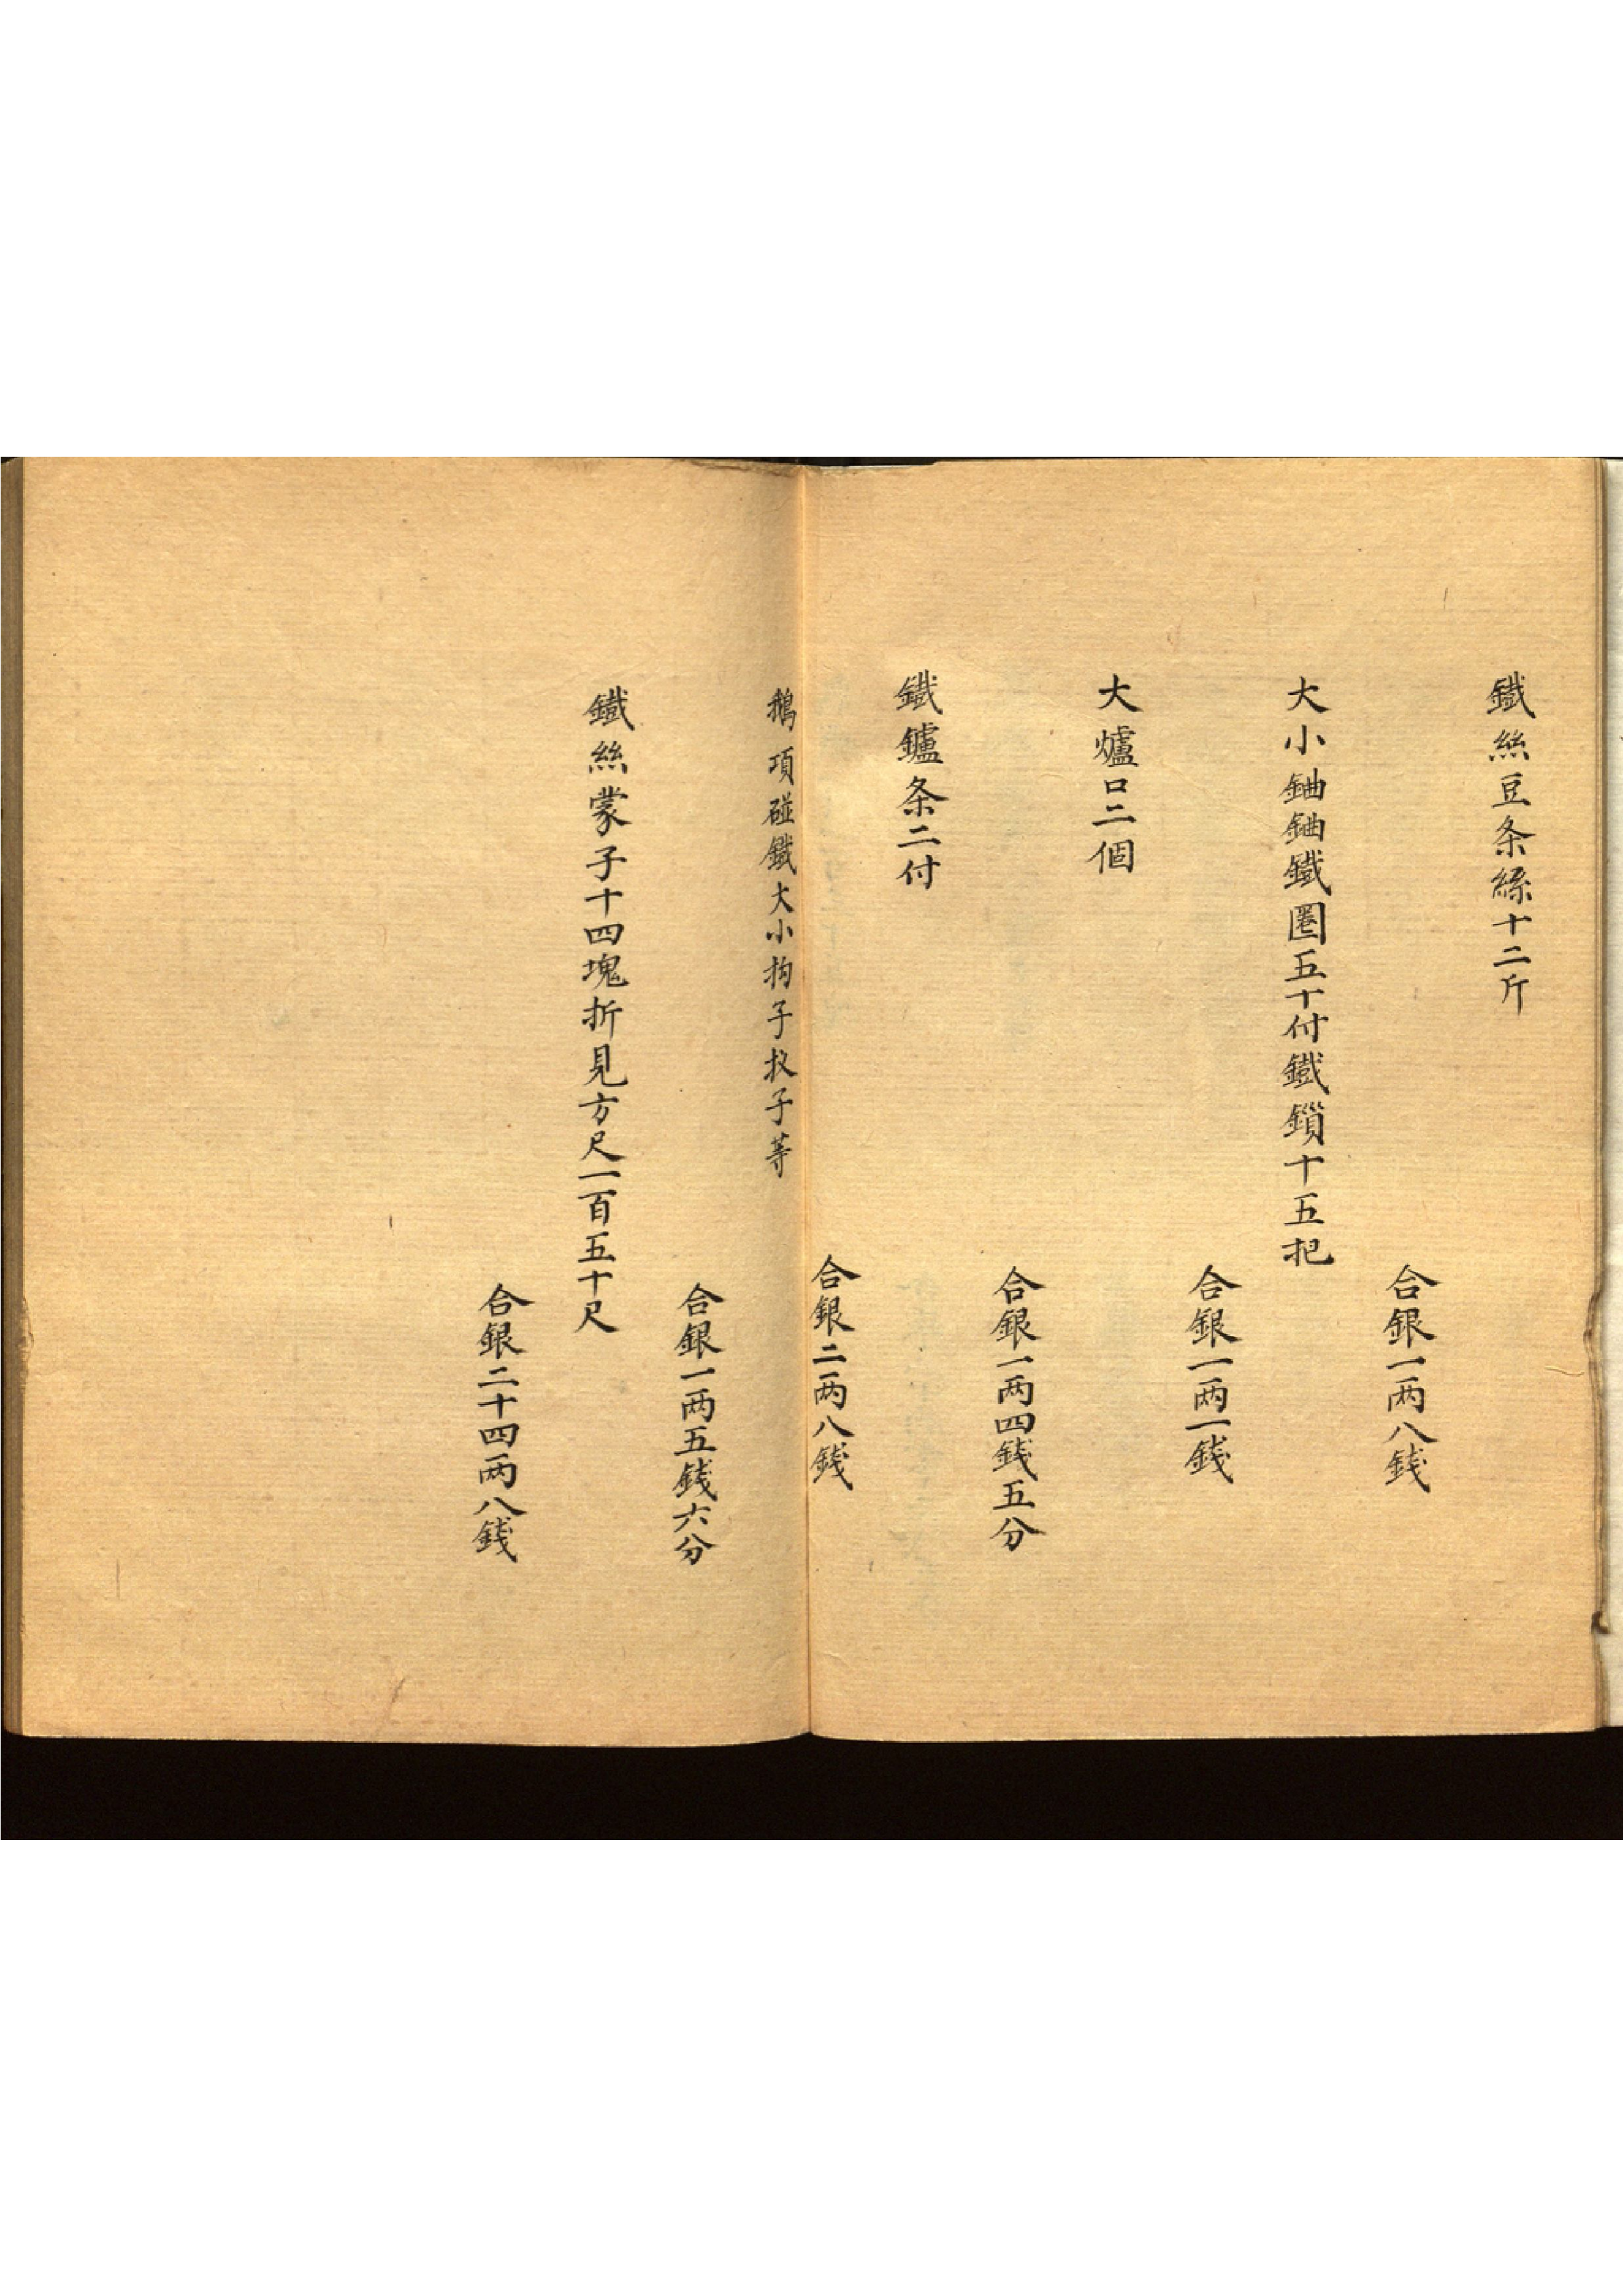 鐵絲豆条綠十二斤
合銀一两八錢
大小鈾鈾鐵圈五十付鐵鎖十五把
合銀一两一錢
大爐口二個
合銀一两四錢五分
鐵鑪条二付
合銀二两八錢
鵝項碰鐵大小拘子扠子等
合銀一两五錢六分
鐵絲蒙子十四塊折見方尺一百五十尺
合銀二十四两八錢